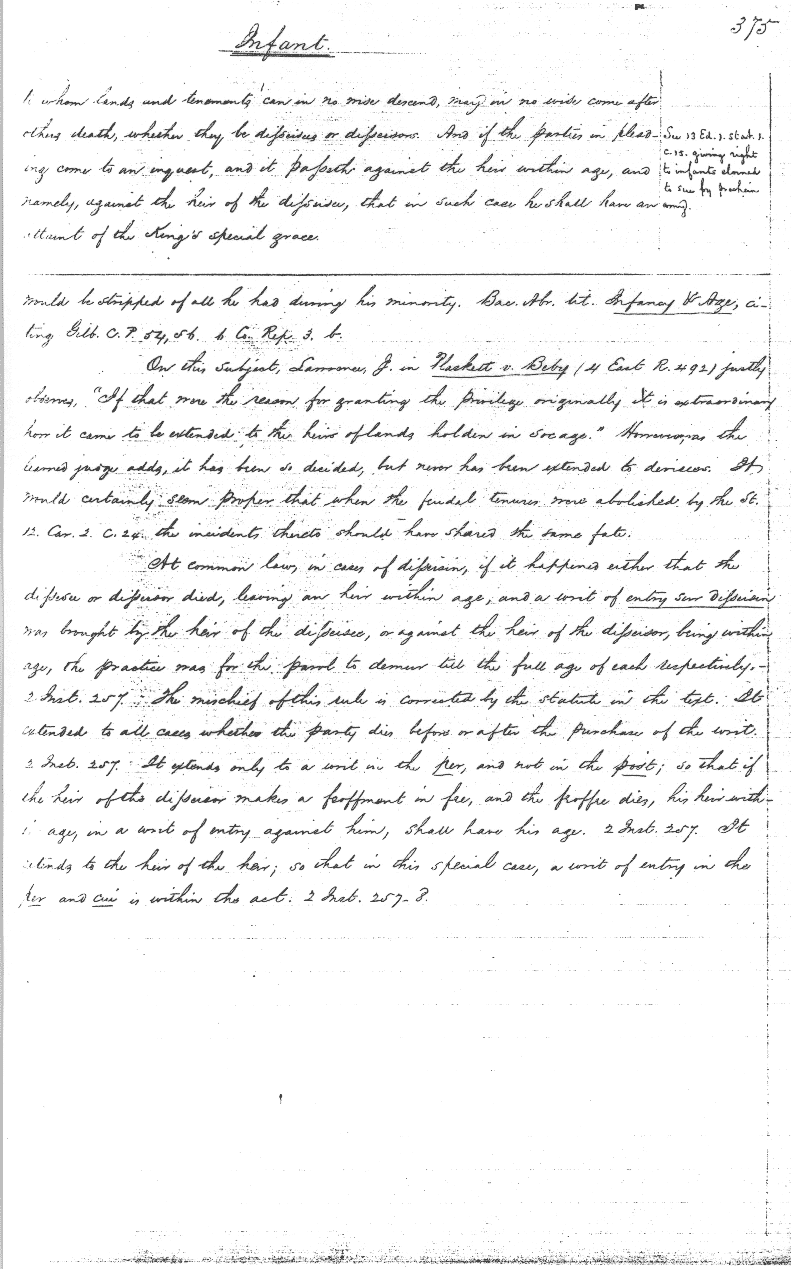 375
Infant.
to whom lands and tenements can in no wise descend, may in no wise come after
others death, whether they be disseisees or disseisors. And if the parties in plead-
ing come to an inquest, and it passeth against the heir within age, and
namely, against the heir of the disseisee, that in such case he shall have an
attaint of the King's special grace.
See 13 Ed. 1. stat. 1.
c. 15. giving right
to infants eloined
to sue by prochein
amy.
would be stripped of all he had during his minority. Bac. Abr. tit. Infancy & Age, ci-
ting Gilb. C. P. 54, 56. 6 Co. Rep. 3. b.
On this subject, Lawrence, J. in Plaskett v. Beby (4 East R. 492) justly
observes, "If that were the reason for granting the privilege originally it is extraordinary
how it came to be extended to the heirs of lands holden in socage." However, as the
learned judge adds, it has been so decided, but never has been extended to devisees. It
would certainly seem proper that when the feudal tenures were abolished by the St.
12. Car. 2. C. 24. the incidents thereto should have shared the same fate.
At common law, in cases of disseisin, if it happened either that the
disseisee or disseisor died, leaving an heir within age, and a writ of entry sur disseisin
was brought by the heir of the disseisee, or against the heir of the disseisor, being within
age, the practice was for the parol to demur till the full age of each respectively. -
2 Inst. 257. The mischief of this rule is corrected by the statute in the text. It
extended to all cases whether the party dies before or after the purchase of the writ.
2 Inst. 257. It extends only to a writ in the per, and not in the post; so that if
the heir of the disseisor makes a feoffment in fee, and the feoffee dies, his heir with-
in age, in a writ of entry against him, shall have his age. 2 Inst. 257. It
extends to the heir of the heir; so that in this special case, a writ of entry in the
per and cui is within the act. 2 Inst. 257-8.